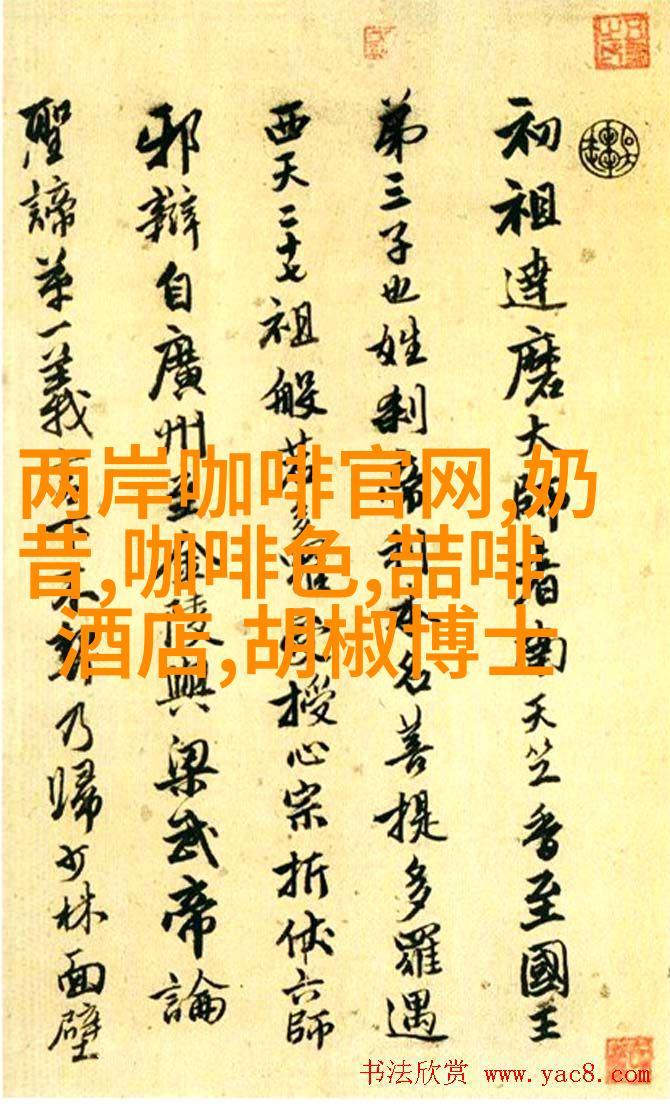 初祖達磨大師者南天竺香至國王
第三子也姓刹帝利本名菩提多羅遇
西天二十七祖般若多羅授心宗折伏六師
邪辯自廣州至金陵與梁武帝論
聖諦第一義乃歸少林面壁
两岸咖啡官网,奶
昔,咖啡色,喆啡
酒店,胡椒博士
书法欣赏 www.yac8.com